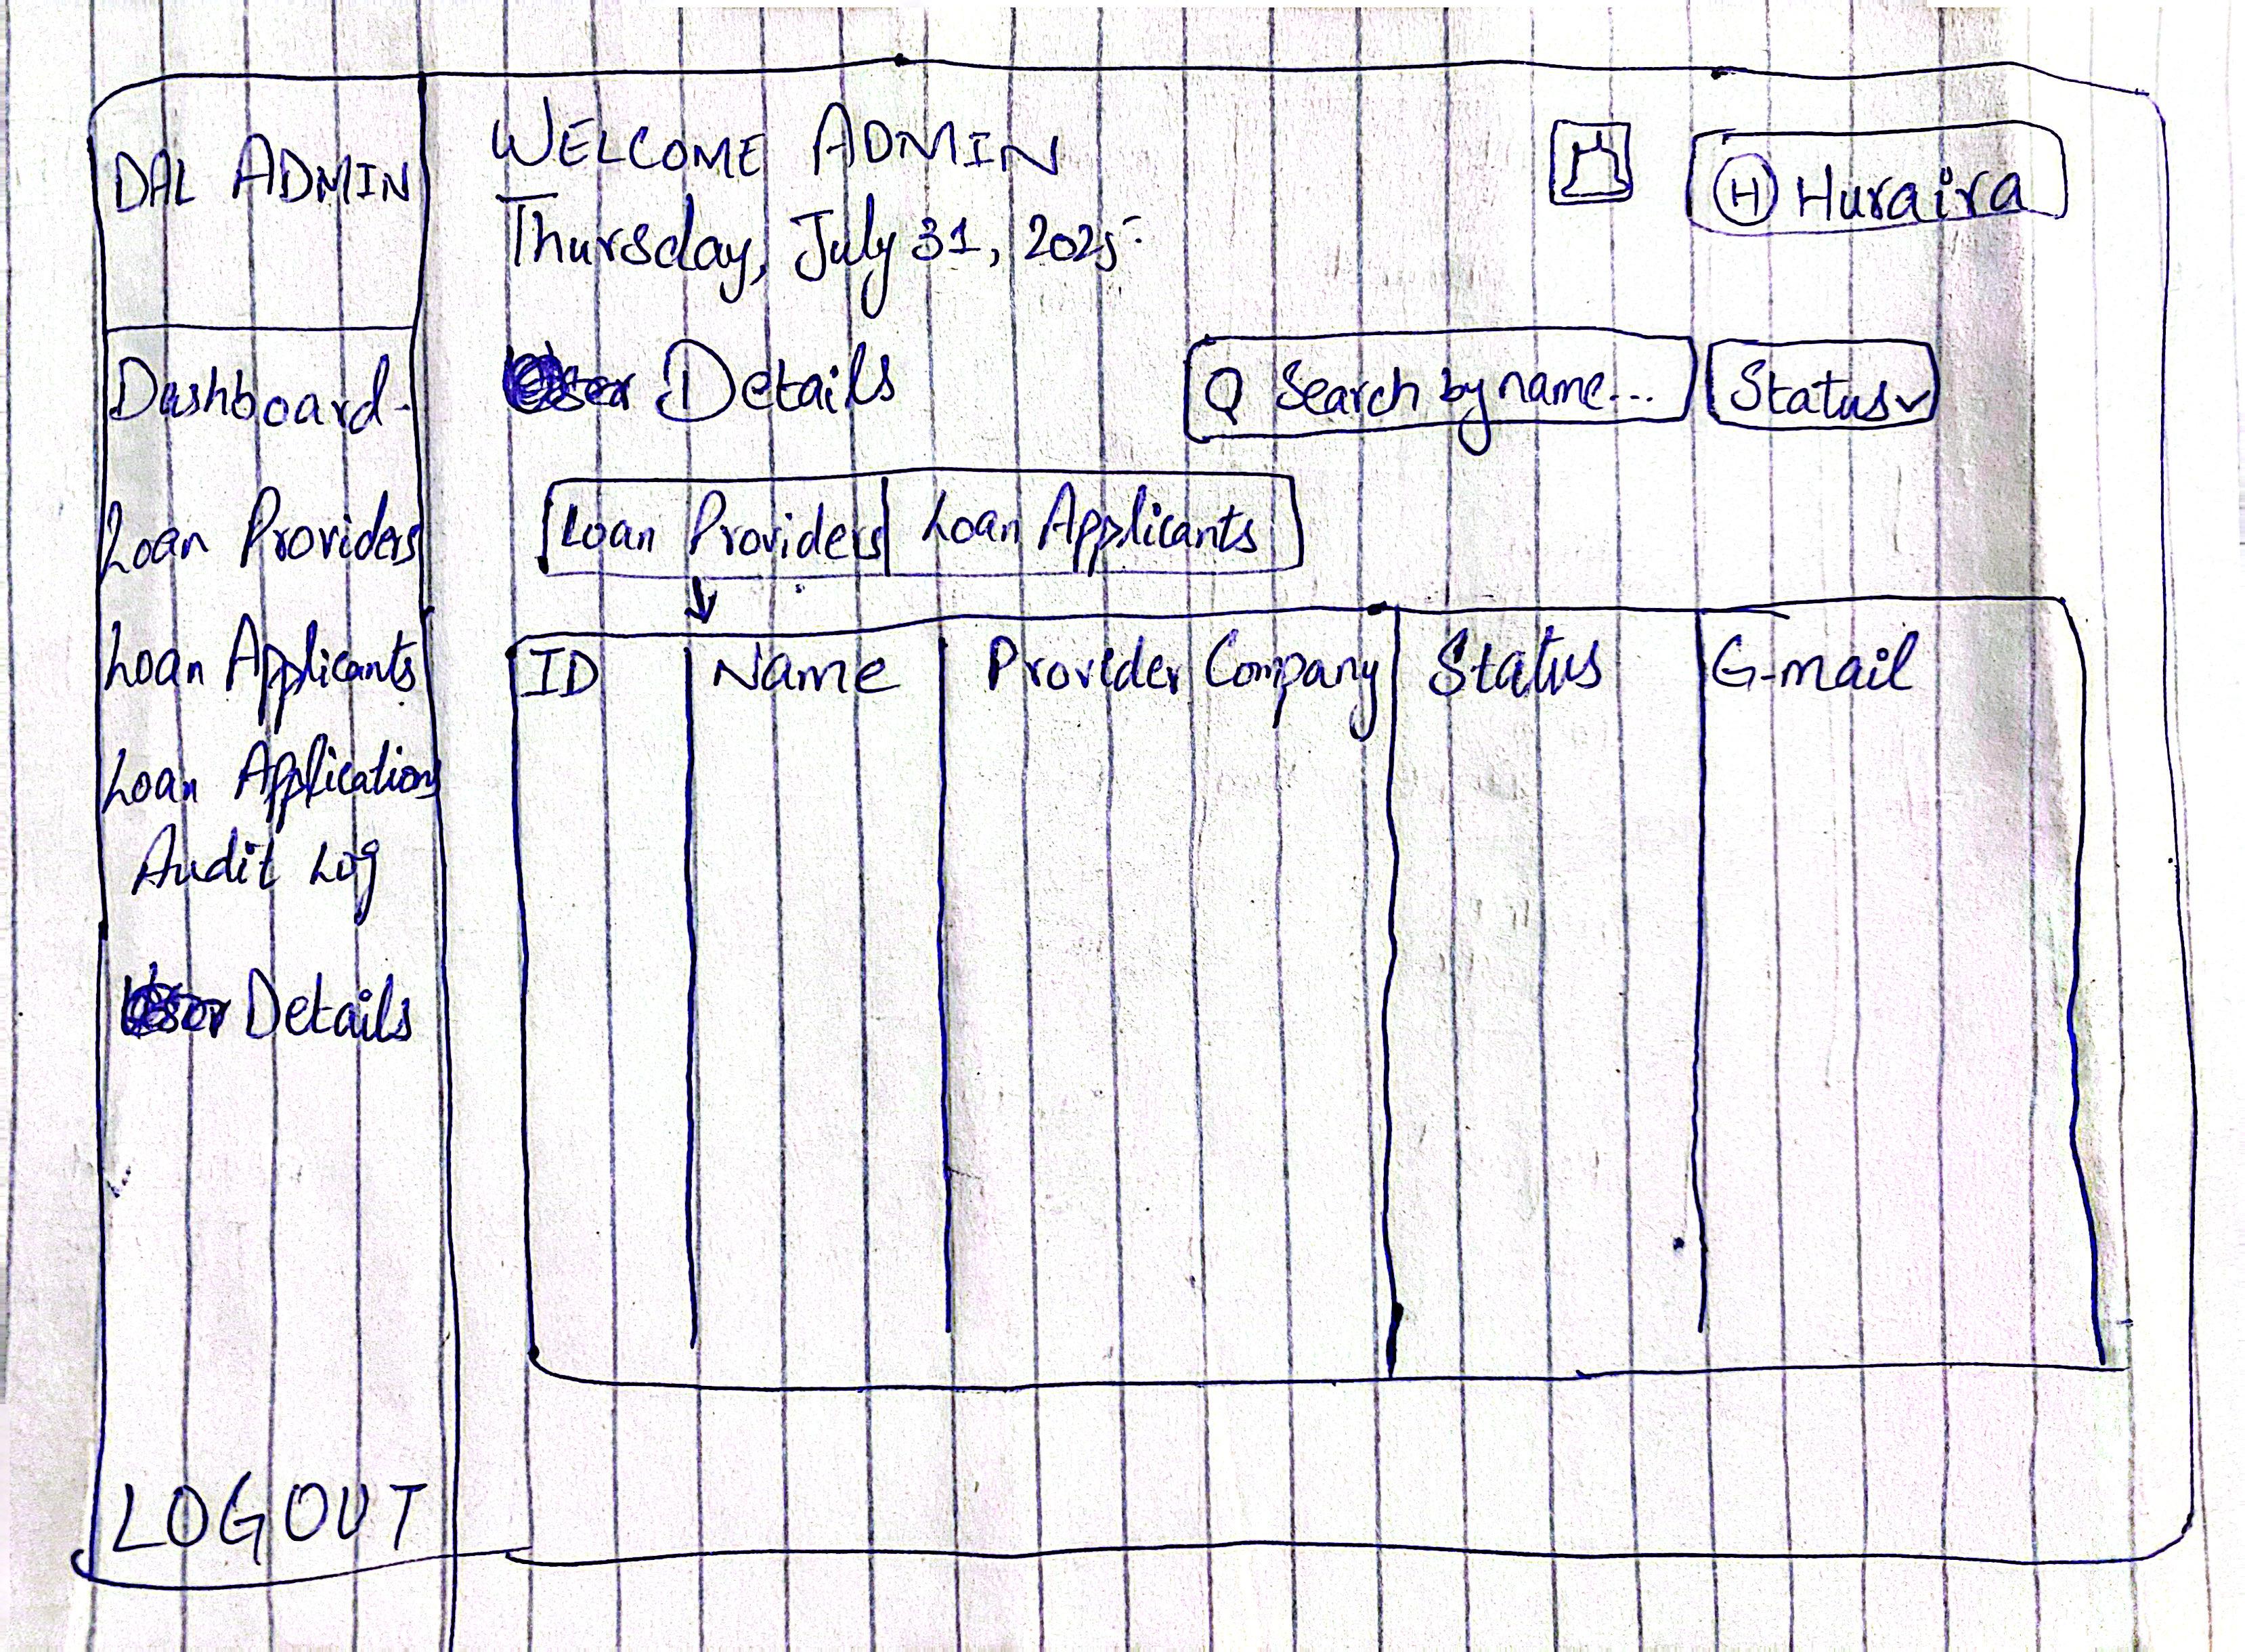 DAL ADMIN
Dashboard
Loan Providers
Loan Applicants
Loan Applications
Audit Log
User Details
LOGOUT
WELCOME ADMIN
Thursday, July 31, 2025
H Huraira
User Details
Search by name...
Status
Loan Providers
Loan Applicants
ID
Name
Provider Company
Status
G-mail